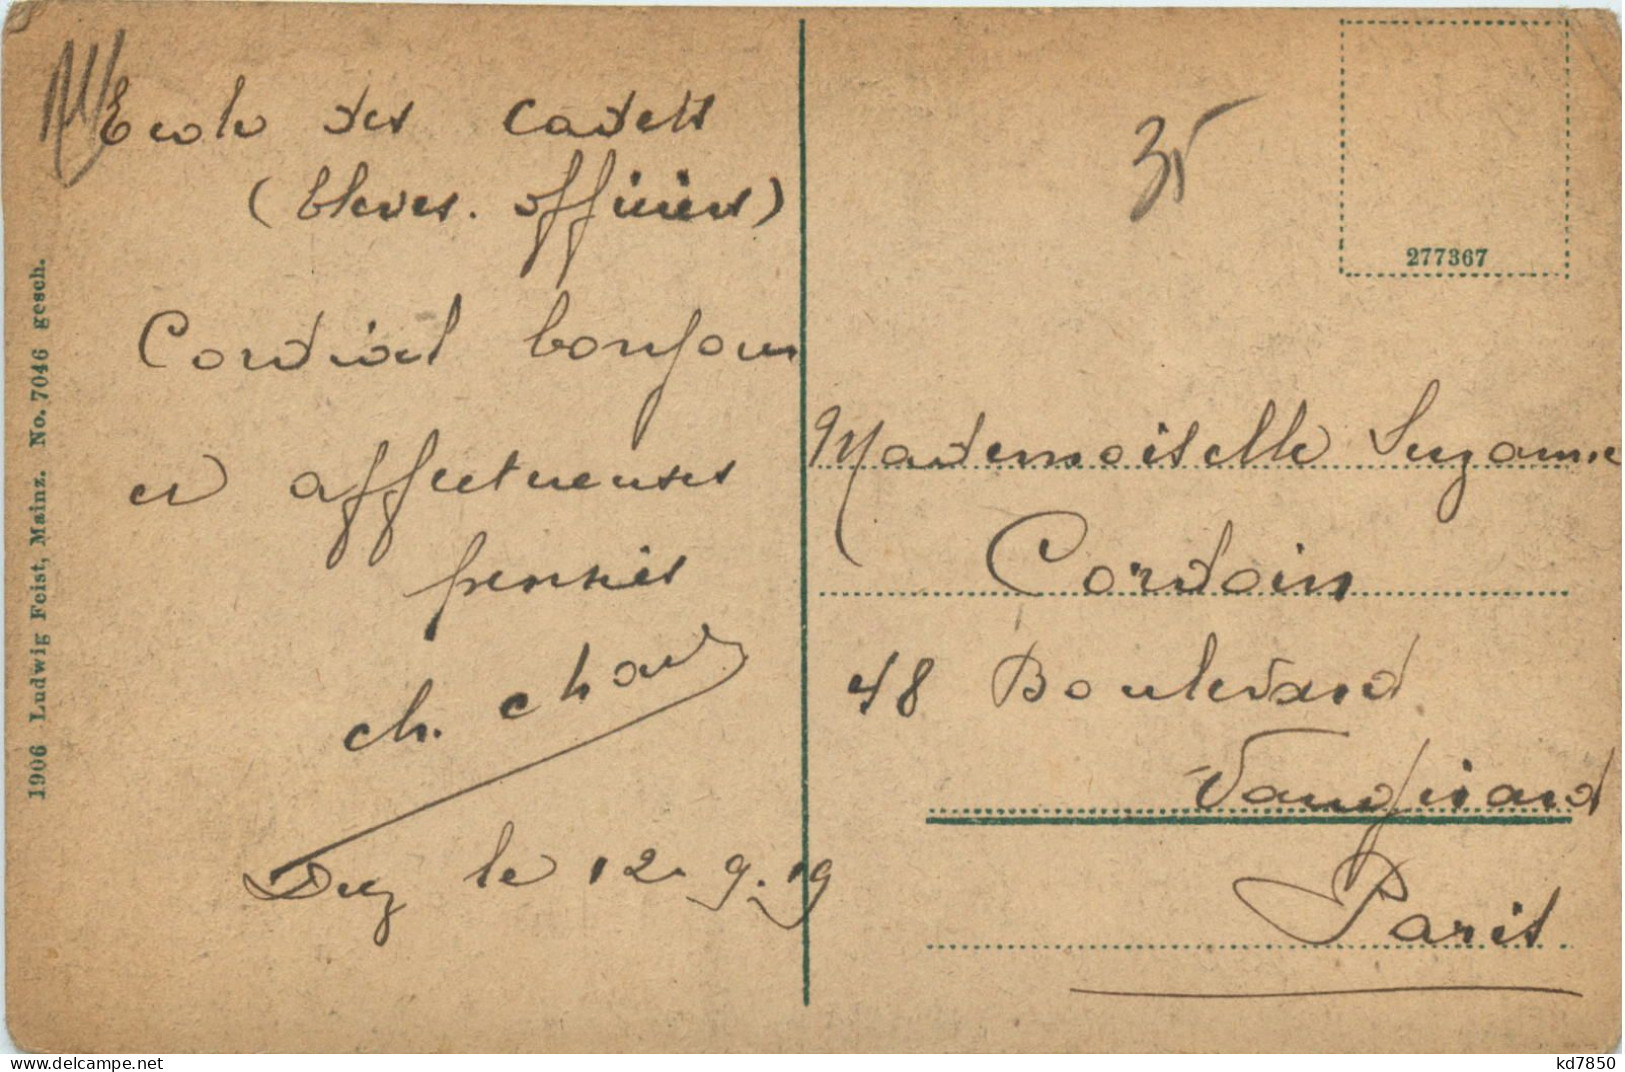 Ecole des cadets
(Eleves. officiers)
Cordial bonjour
et affectueuses
pensées
ch.
Diez le 12.9.19
1906 Ludwig Feist, Mainz. No. 7046 gesch.
35
277367
Mademoiselle Suzanne
Cordoin
48 Boulevard
Vaugirard
Paris
delcampe.net
kd7850